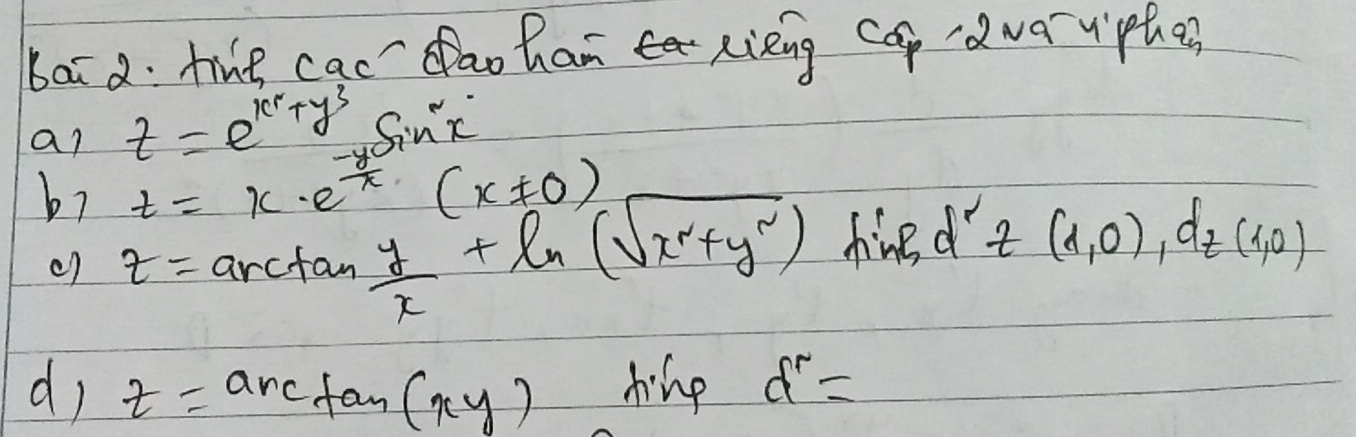 Bài 2. tính các đạo hàm riêng cấp 2 và vi phân
a) z = e^{x²+y³} sin²x
b) z = x.e^{-y/x}. (x≠0)
c) z = arctan y/x + ln(√(x²+y²)) tính d²z (1,0), dz (1,0)
d) z = arctan(xy) tính d² =